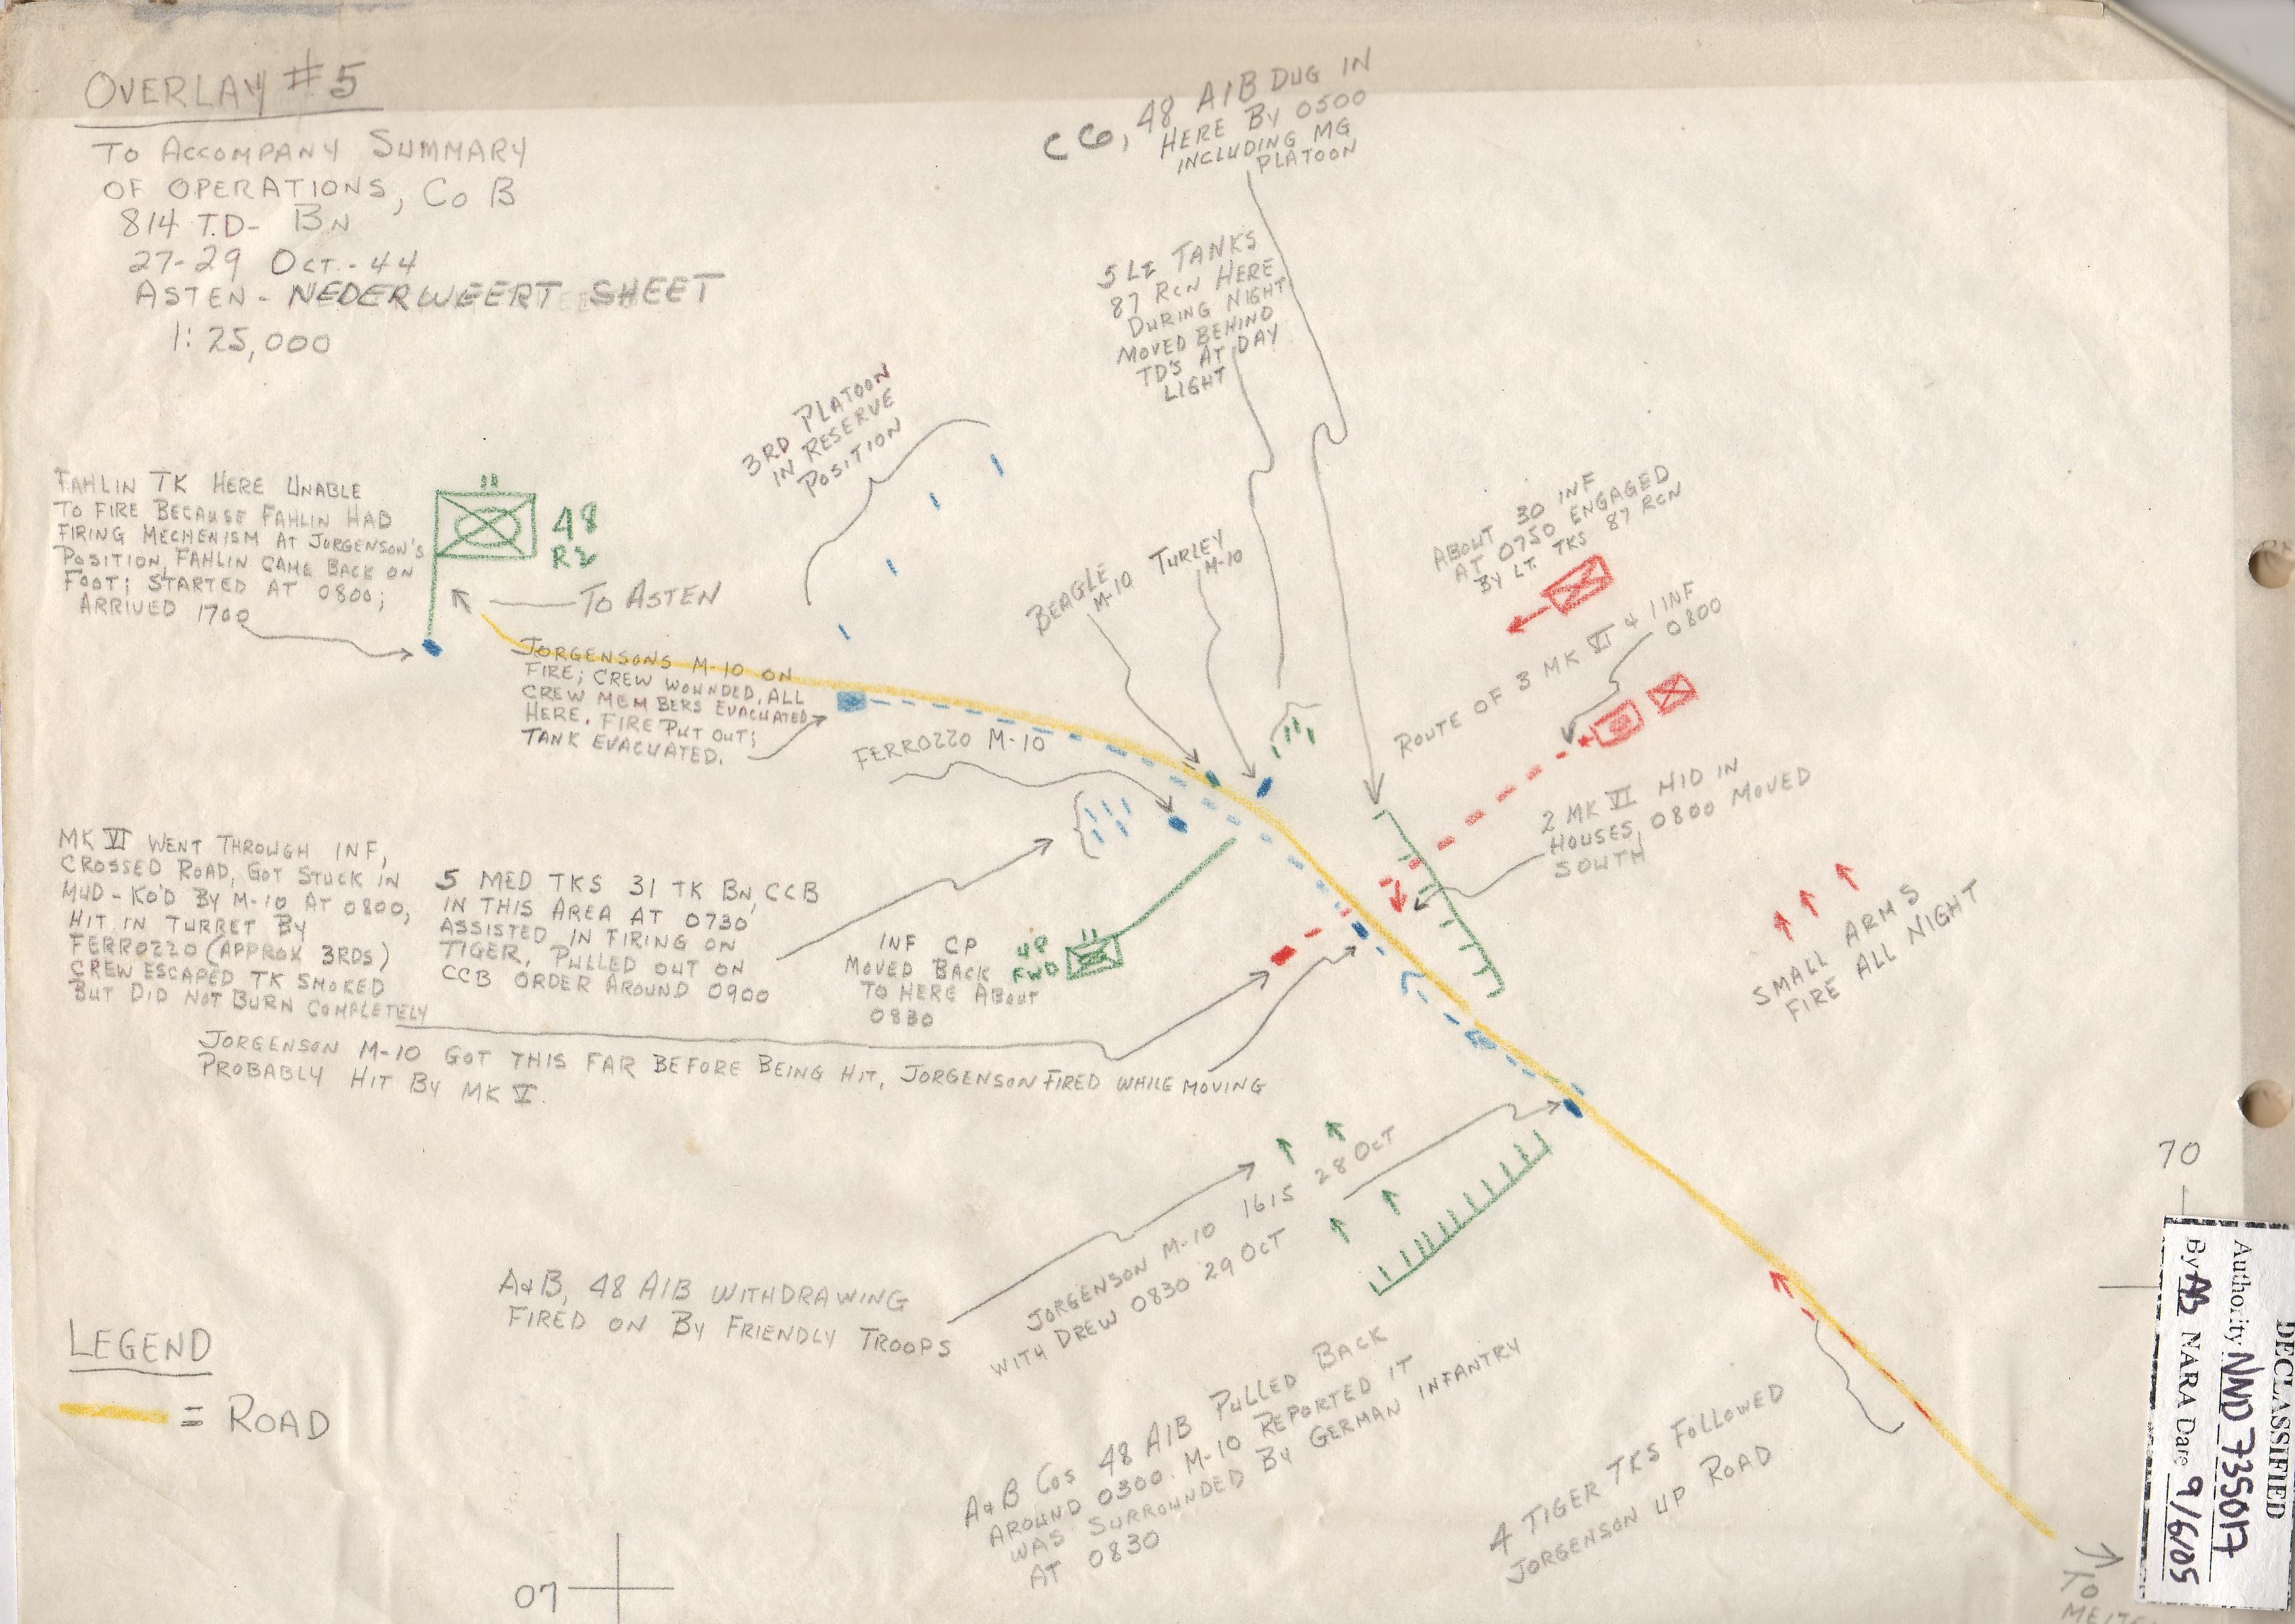 OVERLAY #5
TO ACCOMPANY SUMMARY
OF OPERATIONS, CO B
814 T.D- BN
27-29 OCT.-44
ASTEN - NEDERWEERT SHEET
1:25,000
C CO, 48 AIB DUG IN
HERE BY 0500
INCLUDING MG
PLATOON
5 LT TANKS
87 RCN HERE
DURING NIGHT
MOVED BEHIND
TD'S AT DAY
LIGHT
3RD PLATOON
IN RESERVE
POSITION
FAHLIN TK HERE UNABLE
TO FIRE BECAUSE FAHLIN HAD
FIRING MECHENISM AT JORGENSON'S
POSITION, FAHLIN CAME BACK ON
FOOT; STARTED AT 0800;
ARRIVED 1700
48
R2
TO ASTEN
BEAGLE
M-10
TURLEY
M-10
ABOUT 30 INF
AT 0750 ENGAGED
BY LT. TKS 87 RCN
ROUTE OF 3 MK VI & 1 INF
0800
JORGENSONS M-10 ON
FIRE; CREW WOUNDED, ALL
CREW MEMBERS EVACUATED
HERE. FIRE PUT OUT;
TANK EVACUATED.
FERROZZO M-10
2 MK VI HID IN
HOUSES, 0800 MOVED
SOUTH
MK VI WENT THROUGH INF,
CROSSED ROAD, GOT STUCK IN
MUD - KO'D BY M-10 AT 0800,
HIT IN TURRET BY
FERROZZO (APPROX 3RDS)
CREW ESCAPED TK SMOKED
BUT DID NOT BURN COMPLETELY
5 MED TKS 31 TK BN, CCB
IN THIS AREA AT 0730
ASSISTED IN FIRING ON
TIGER, PULLED OUT ON
CCB ORDER AROUND 0900
INF CP
MOVED BACK
TO HERE ABOUT
0830
48
FWD
SMALL ARMS
FIRE ALL NIGHT
JORGENSON M-10 GOT THIS FAR BEFORE BEING HIT, JORGENSON FIRED WHILE MOVING
PROBABLY HIT BY MK V.
JORGENSON M-10 1615 28 OCT
WITH DREW 0830 29 OCT
A&B, 48 AIB WITHDRAWING
FIRED ON BY FRIENDLY TROOPS
A & B COS 48 AIB PULLED BACK
AROUND 0300. M-10 REPORTED IT
WAS SURROUNDED BY GERMAN INFANTRY
AT 0830
4 TIGER TKS FOLLOWED
JORGENSON UP ROAD
LEGEND
= ROAD
70
07
TO
DECLASSIFIED
Authority NND 735017
By AB NARA Date 9/6/05